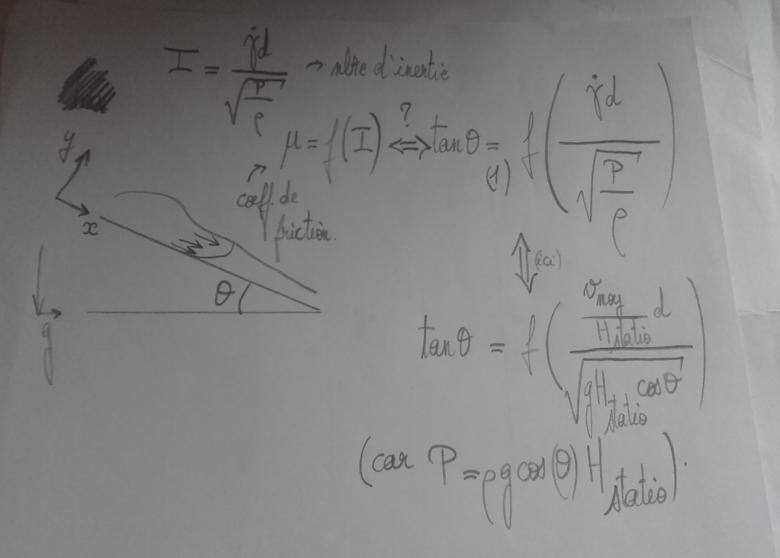 I = γ̇d / √(P/ρ) → nbre d'inertie
μ = f(I) ⇔? tanθ = (1) f( γ̇d / √(P/ρ) )
coeff. de
friction.
y
x
θ
g
⇕ (ici)
tanθ = f( (v_moy / H_statio) d / √(gH_statio cosθ) )
(car P = ρg cos(θ) H_statio).